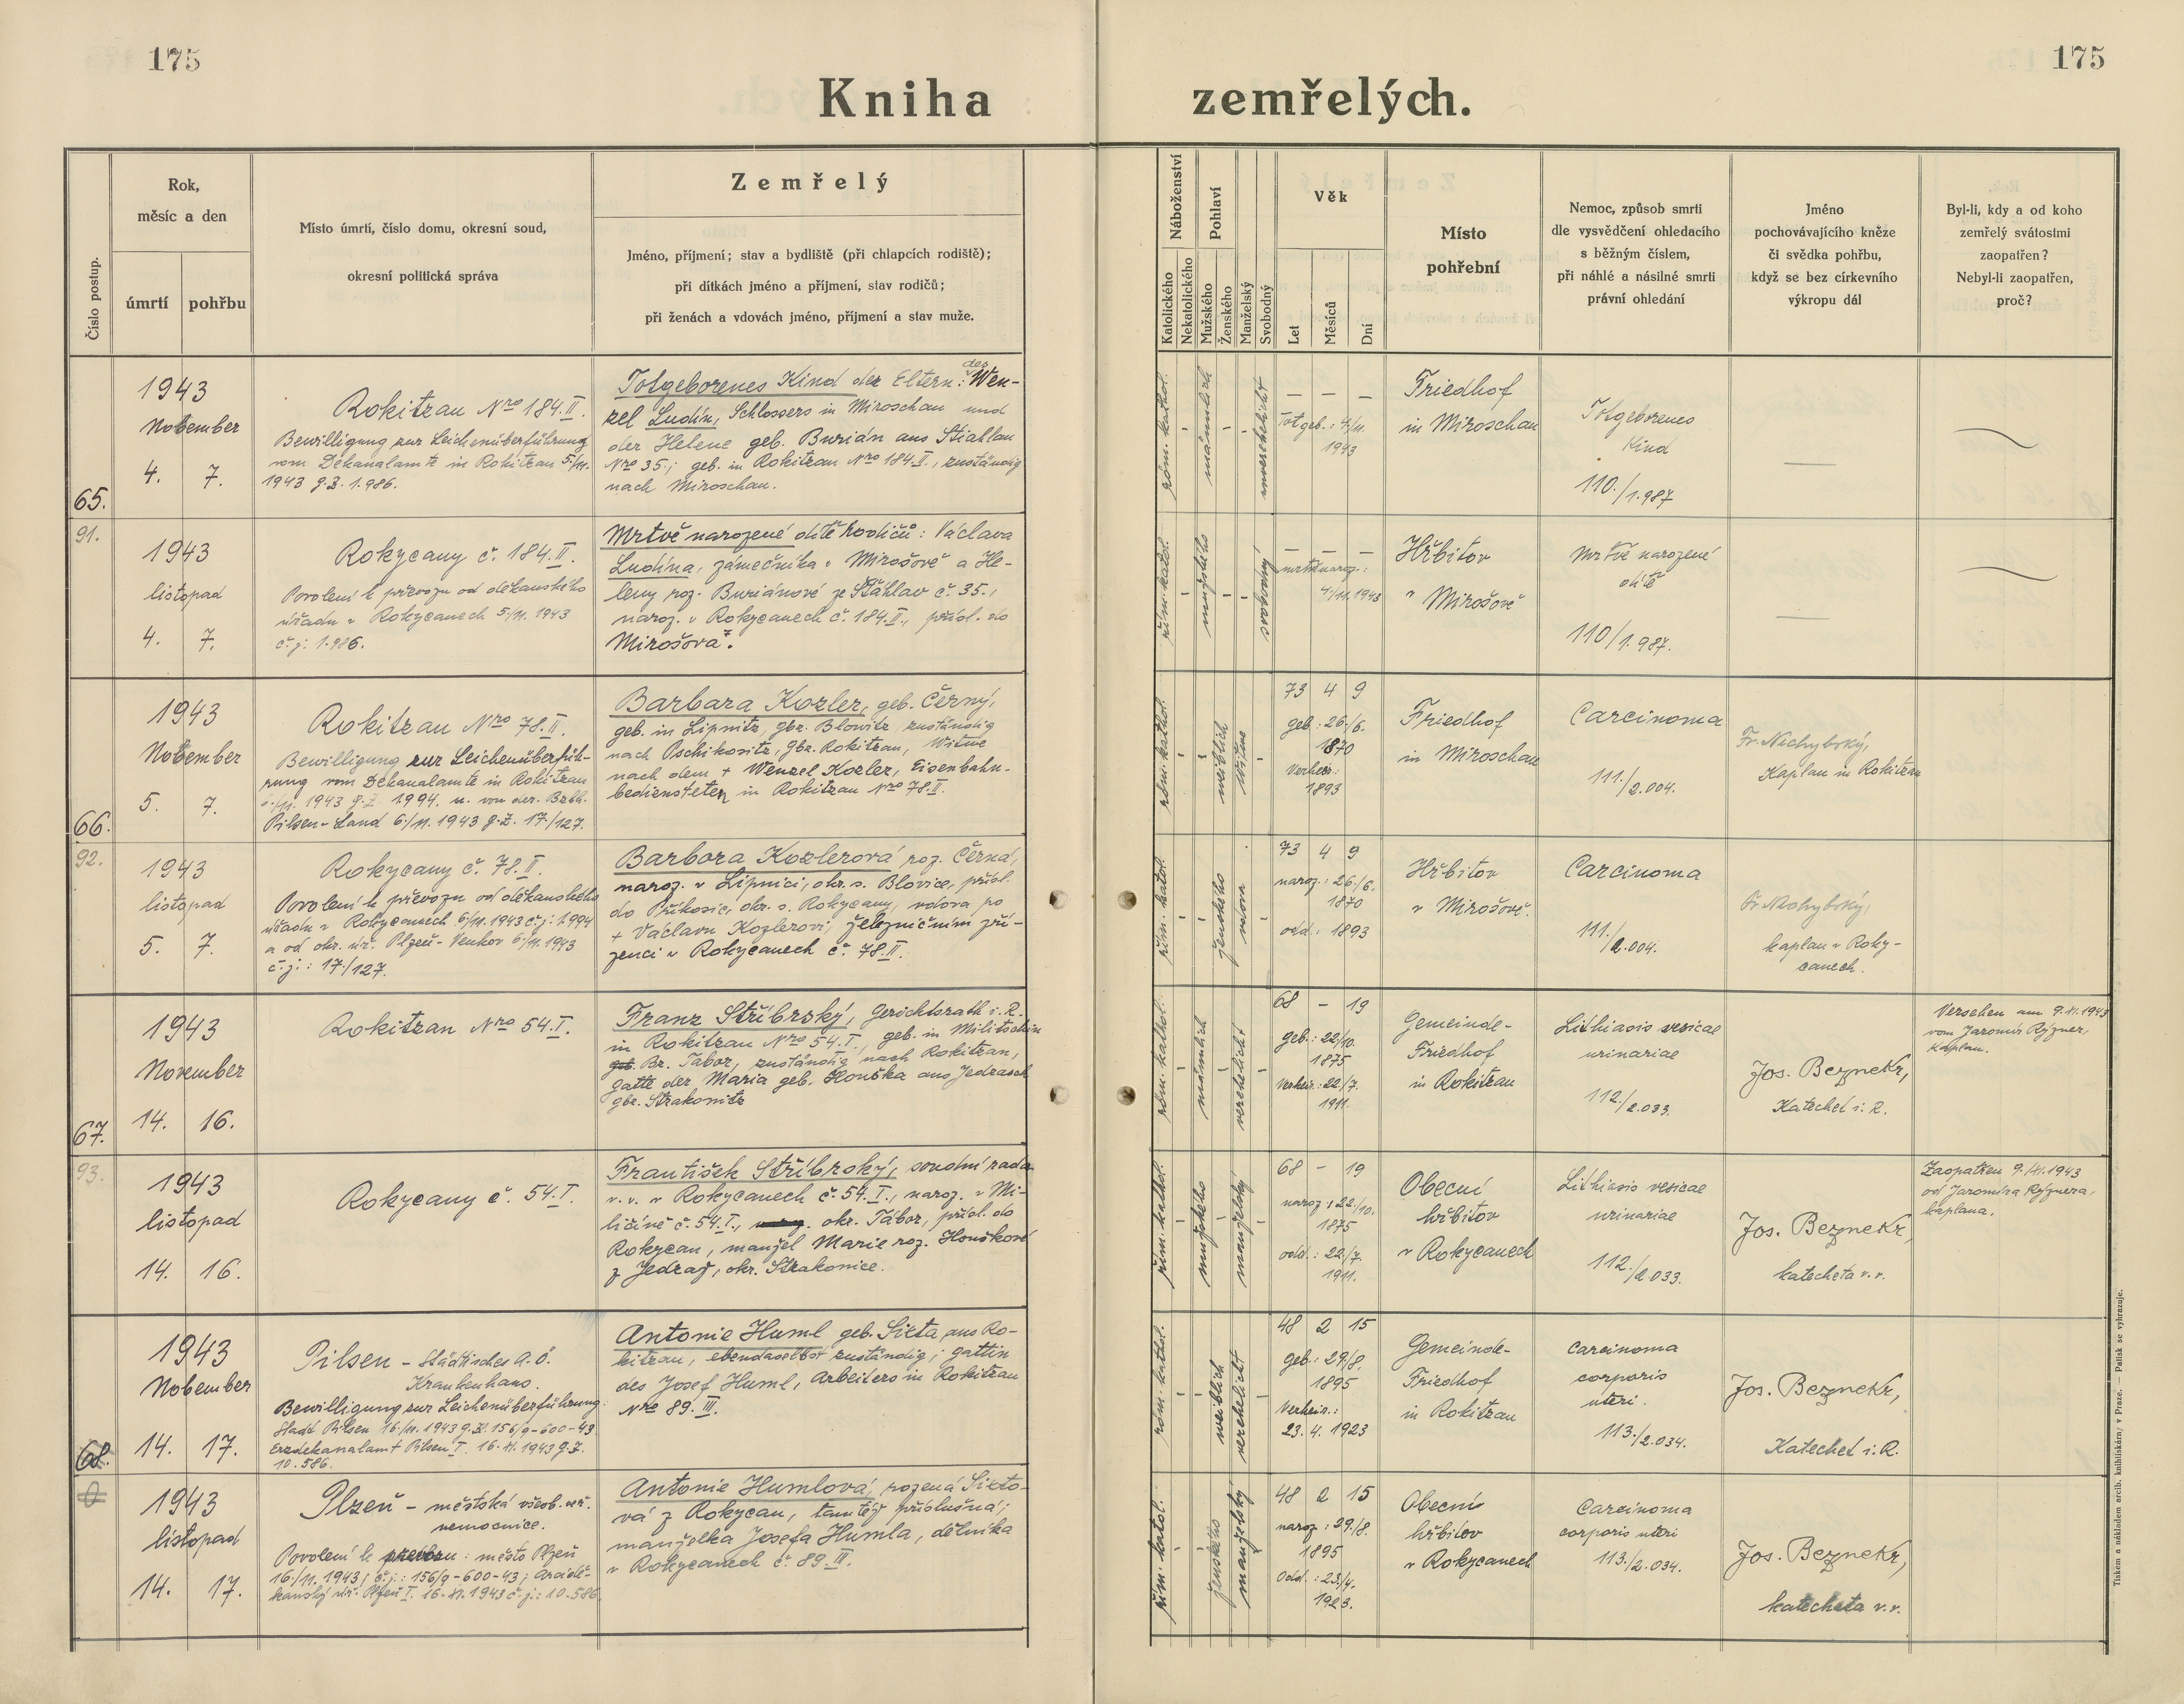 175
175
Kniha zemřelých.
Číslo postup.
Rok,
měsíc a den
úmrtí
pohřbu
Místo úmrtí, číslo domu, okresní soud,
okresní politická správa
Zemřelý
Jméno, příjmení; stav a bydliště (při chlapcích rodiště);
při dítkách jméno a příjmení, stav rodičů;
při ženách a vdovách jméno, příjmení a stav muže.
Náboženství
Katolického
Nekatolického
Pohlaví
Mužského
Ženského
Manželský
Svobodný
Věk
Let
Měsíců
Dní
Místo
pohřební
Nemoc, způsob smrti
dle vysvědčení ohledacího
s běžným číslem,
při náhlé a násilné smrti
právní ohledání
Jméno
pochovávajícího kněze
či svědka pohřbu,
když se bez církevního
výkropu dál
Byl-li, kdy a od koho
zemřelý svátostmi
zaopatřen?
Nebyl-li zaopatřen,
proč?
65.
1943
November
4. 7.
Rokitzan Nro 184.II.
Bewilligung zur Leichenüberführung
vom Dekanalamte in Rokitzan 5./11.
1943 g.Z. 1.986.
Totgeborenes Kind der Eltern: des Wen-
zel Ludín, Schlossers in Miroschau und
der Helene geb. Burián aus Stiahlau
Nro 35.; geb. in Rokitzan Nro 184.II., zuständig
nach Miroschau.
röm. kathol.
männlich
unverehelicht
— — —
Totgeb.: 4./11.
1943
Friedhof
in Miroschau
Totgeborenes
Kind
110./1.987
91.
1943
listopad
4. 7.
Rokycany č. 184.II.
Povolení k převozu od děkanského
úřadu v Rokycanech 5/11. 1943
č.j. 1.986.
Mrtvě narozené dítě rodičů: Václava
Ludína, zámečníka v Mirošově a He-
leny roz. Buriánové ze Šťáhlav č. 35.,
naroz. v Rokycanech č. 184.II., přísl. do
Mirošova.
řím. katol.
mužského
svobodný
— — —
mrtvě naroz.:
4./11. 1943
Hřbitov
v Mirošově
Mrtvě narozené
dítě
110/1.987.
66.
1943
November
5. 7.
Rokitzan Nro 78.II.
Bewilligung zur Leichenüberfüh-
rung vom Dekanalamte in Rokitzan
6./11. 1943 g.Z. 1.994. u. von der Bzbh.
Pilsen-Land 6./11. 1943 g.Z. 17./127.
Barbara Kozler, geb. Černý,
geb. in Lipnitz, gbz. Blowitz, zuständig
nach Pschikositz, gbz. Rokitzan, Witwe
nach dem + Wenzel Kozler, Eisenbahn-
bediensteten in Rokitzan Nro 78.II.
röm. kathol.
weiblich
Witwe
73 4 9
geb.: 26./6.
1870
Verheir.:
1893
Friedhof
in Miroschau
Carcinoma
111./2.004.
Kaplan in Rokitzan
92.
1943
listopad
5. 7.
Rokycany č. 78.II.
Povolení k převozu od děkanského
úřadu v Rokycanech 6/11. 1943 č.j: 1.994
a od okr. úř. Plzeň-Venkov 6/11. 1943
č.j.: 17./127.
Barbora Kozlerová roz. Černá,
naroz. v Lipnici, okr. s. Blovice, přísl.
do Příkosic, okr. s. Rokycany, vdova po
+ Václavu Kozlerovi, železničním zří-
zenci v Rokycanech č. 78.II.
řím. katol.
ženského
vdova
73 4 9
naroz.: 26./6.
1870
odd.: 1893
Hřbitov
v Mirošově.
Carcinoma
111./2.004.
kaplan v Roky-
canech.
67.
1943
November
14. 16.
Rokitzan Nro 54.I.
Franz Stříbrský, Gerichtsrath i. R.
in Rokitzan Nro 54.I., geb. in Militschin
Bz. Tabor, zuständig nach Rokitzan,
Gatte der Maria geb. Houška aus Jedrasch
gbz. Strakonitz
röm. kathol.
männlich
verehelicht
68 — 19
geb.: 22/10.
1875
Verheir.: 22/7.
1911.
Gemeinde-
Friedhof
in Rokitzan
Lithiasis vesicae
urinariae
112./2.033.
Jos. Beznekr,
Katechet i. R.
Versehen am 9.11.1943
vom Jaromír Rýzner,
Kaplan.
93.
1943
listopad
14. 16.
Rokycany č. 54.I.
František Stříbrský, soudní rada
v. v. v Rokycanech č. 54.I., naroz. v Mi-
ličíně č. 54.I., okr. Tábor, přísl. do
Rokycan, manžel Marie roz. Houškové
z Jedraž, okr. Strakonice.
řím. kathol.
mužského
manželský
68 — 19
naroz: 22./10.
1875
odd.: 22./7.
1911.
Obecní
hřbitov
v Rokycanech
Lithiasis vesicae
urinariae
112./2.033.
Jos. Beznekr,
katecheta v. v.
Zaopatřen 9./XI.1943
od Jaromíra Rýznera,
kaplana.
68.
1943
November
14. 17.
Pilsen – städtisches a. ö.
Krankenhaus.
Bewilligung zur Leichenüberführung:
Stadt Pilsen 16./11. 1943 g.Z. 156/9-600-43
Erzdekanalamt Pilsen I. 16. XI. 1943 g.Z.
10.586.
Antonie Huml geb. Sixta aus Ro-
kitzan, ebendaselbst zuständig; Gattin
des Josef Huml, Arbeiters in Rokitzan
Nro 89.III.
röm. kathol.
weiblich
verehelicht
48 2 15
geb.: 29./8.
1895
Verheir.:
23.4. 1923
Gemeinde-
Friedhof
in Rokitzan
Carcinoma
corporis
uteri.
113./2.034.
Jos. Beznekr,
Katechet i. R.
1943
listopad
14. 17.
Plzeň – městská všeob. veř.
nemocnice.
Povolení k převozu: město Plzeň
16./11. 1943, č.j.: 156/9-600-43; Arciděk-
kanský úř. Plzeň I. 16. XI. 1943 č.j.: 10.586.
Antonie Humlová, rozená Sixto-
vá z Rokycan, tamtéž příslušná;
manželka Josefa Humla, dělníka
v Rokycanech č. 89.III.
řím. katol.
ženského
manželský
48 2 15
naroz: 29./8.
1895
Odd.: 23./4.
1923.
Obecní
hřbitov
v Rokycanech
Carcinoma
corporis uteri
113./2.034.
Jos. Beznekr,
katecheta v. v.
Tiskem a nákladem arcib. knihtiskárny v Praze. — Patisk se vyhrazuje.